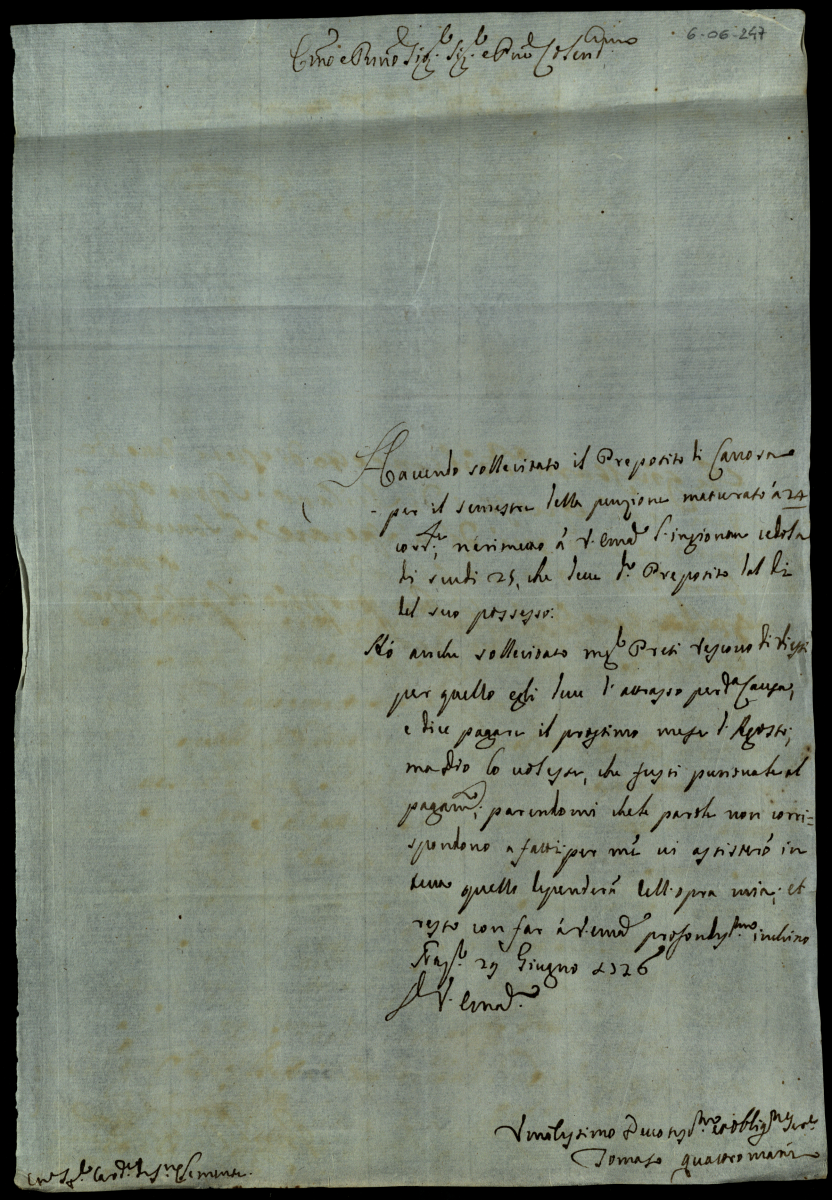 6-06-247
Em̃o e Rm̃o Sig.r Sig.r e Pñe Colend.mo
Hauendo sollecitato il Preposito di Canosa
per il semestre della penzione maturato à 24
cor.te, rimetto à V. Em̃a l'ingionta cedola
di scudi 25, che deue d.o Preposito dal dì
del suo possesso.
Hò anche sollecitato mg.r Preti Vescouo di
per quello egli deue l'attrasso per d.a Causa,
e dice pagare il prossimo mese d'Agosto;
ma Dio lo volesse, che fusse puntuale al
pagam.to, parendomi che le parole non corri=
spondono a fatti; per mè vi assisterò in
tutto quello dipenderà dell'opra mia; et
resto con far à V. Em̃a profondiss.mo inchino
Nap.l 29 Giugno 1726
D. V. Em̃a
Vmilissimo Deuotiss.mo et obblig.mo Ser.re
Tomaso Quattromani
Em̃o Sig.r Card.le S. Clemente